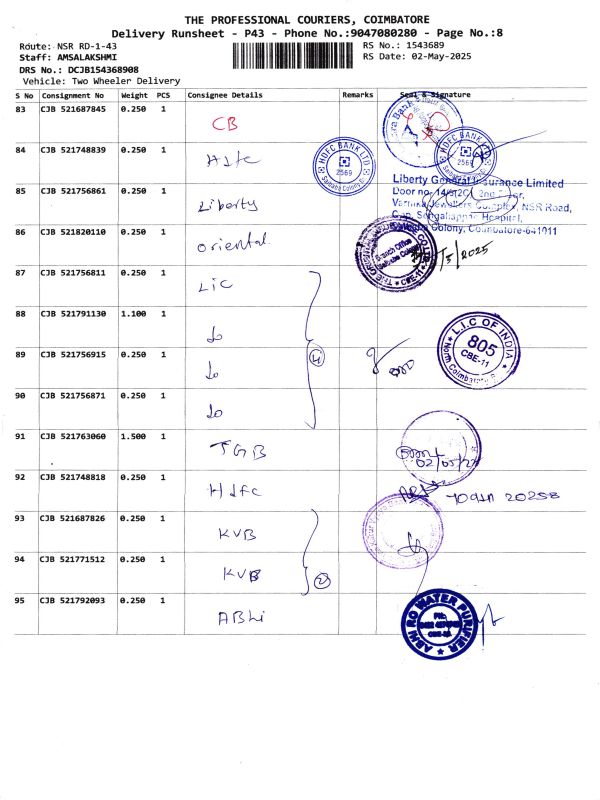 THE PROFESSIONAL COURIERS, COIMBATORE
Delivery Runsheet - P43 - Phone No.:9047080280 - Page No.:8
Route: NSR RD-1-43
RS No.: 1543689
Staff: AMSALAKSHMI
RS Date: 02-May-2025
DRS No.: DCJB154368908
Vehicle: Two Wheeler Delivery
S No Consignment No Weight PCS Consignee Details Remarks Seal & Signature
83 CJB 521687845 0.250 1 CB
84 CJB 521748839 0.250 1 Hdfc
HDFC BANK LTD
2569
Saibaba Colony
HDFC BANK
2569
85 CJB 521756861 0.250 1 Liberty
Liberty General Insurance Limited
Door no. 2nd Floor,
Jewellers Complex, NSR Road,
Hospital,
Colony, Coimbatore-641011
86 CJB 521820110 0.250 1 oriental
Branch Office
Saibaba Colony
CBE-11
/5/2025
87 CJB 521756811 0.250 1 LIC
88 CJB 521791130 1.100 1 do
89 CJB 521756915 0.250 1 do
4
L.I.C OF INDIA
805
CBE-11
Coimbatore
90 CJB 521756871 0.250 1 do
91 CJB 521763060 1.500 1 TGB
92 CJB 521748818 0.250 1 Hdfc
93 CJB 521687826 0.250 1 KVB
94 CJB 521771512 0.250 1 KVB
2
95 CJB 521792093 0.250 1 ABhi
ABHI RO WATER PURIFIER